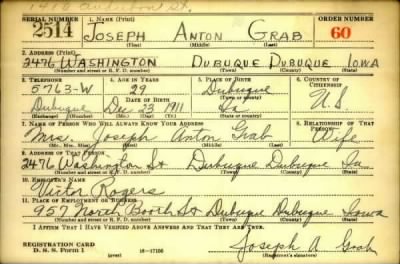 1476 Audubon St.
SERIAL NUMBER 1. NAME (Print) ORDER NUMBER
2514 JOSEPH ANTON GRAB 60
(First) (Middle) (Last)
2. ADDRESS (Print)
2476 WASHINGTON DUBUQUE DUBUQUE IOWA
(Number and street or R. F. D. number) (Town) (County) (State)
3. TELEPHONE 4. AGE IN YEARS 5. PLACE OF BIRTH 6. COUNTRY OF CITIZENSHIP
5763-W 29 Dubuque U.S.
DATE OF BIRTH (Town or county)
Dubuque Dec 23 1911 Ia
(Exchange) (Number) (Mo.) (Day) (Yr.) (State or country)
7. NAME OF PERSON WHO WILL ALWAYS KNOW YOUR ADDRESS 8. RELATIONSHIP OF THAT PERSON
Mrs. Joseph Anton Grab Wife
(Mr., Mrs., Miss) (First) (Middle) (Last)
9. ADDRESS OF THAT PERSON
2476 Washington St Dubuque Dubuque Ia
(Number and street or R. F. D. number) (Town) (County) (State)
10. EMPLOYER'S NAME
Victor Rogers
11. PLACE OF EMPLOYMENT OR BUSINESS
957 North Booth St Dubuque Dubuque Iowa
(Number and street or R. F. D. number) (Town) (County) (State)
I AFFIRM THAT I HAVE VERIFIED ABOVE ANSWERS AND THAT THEY ARE TRUE.
REGISTRATION CARD
D. S. S. Form 1 16—17105 Joseph A Grab
(over) (Registrant's signature)